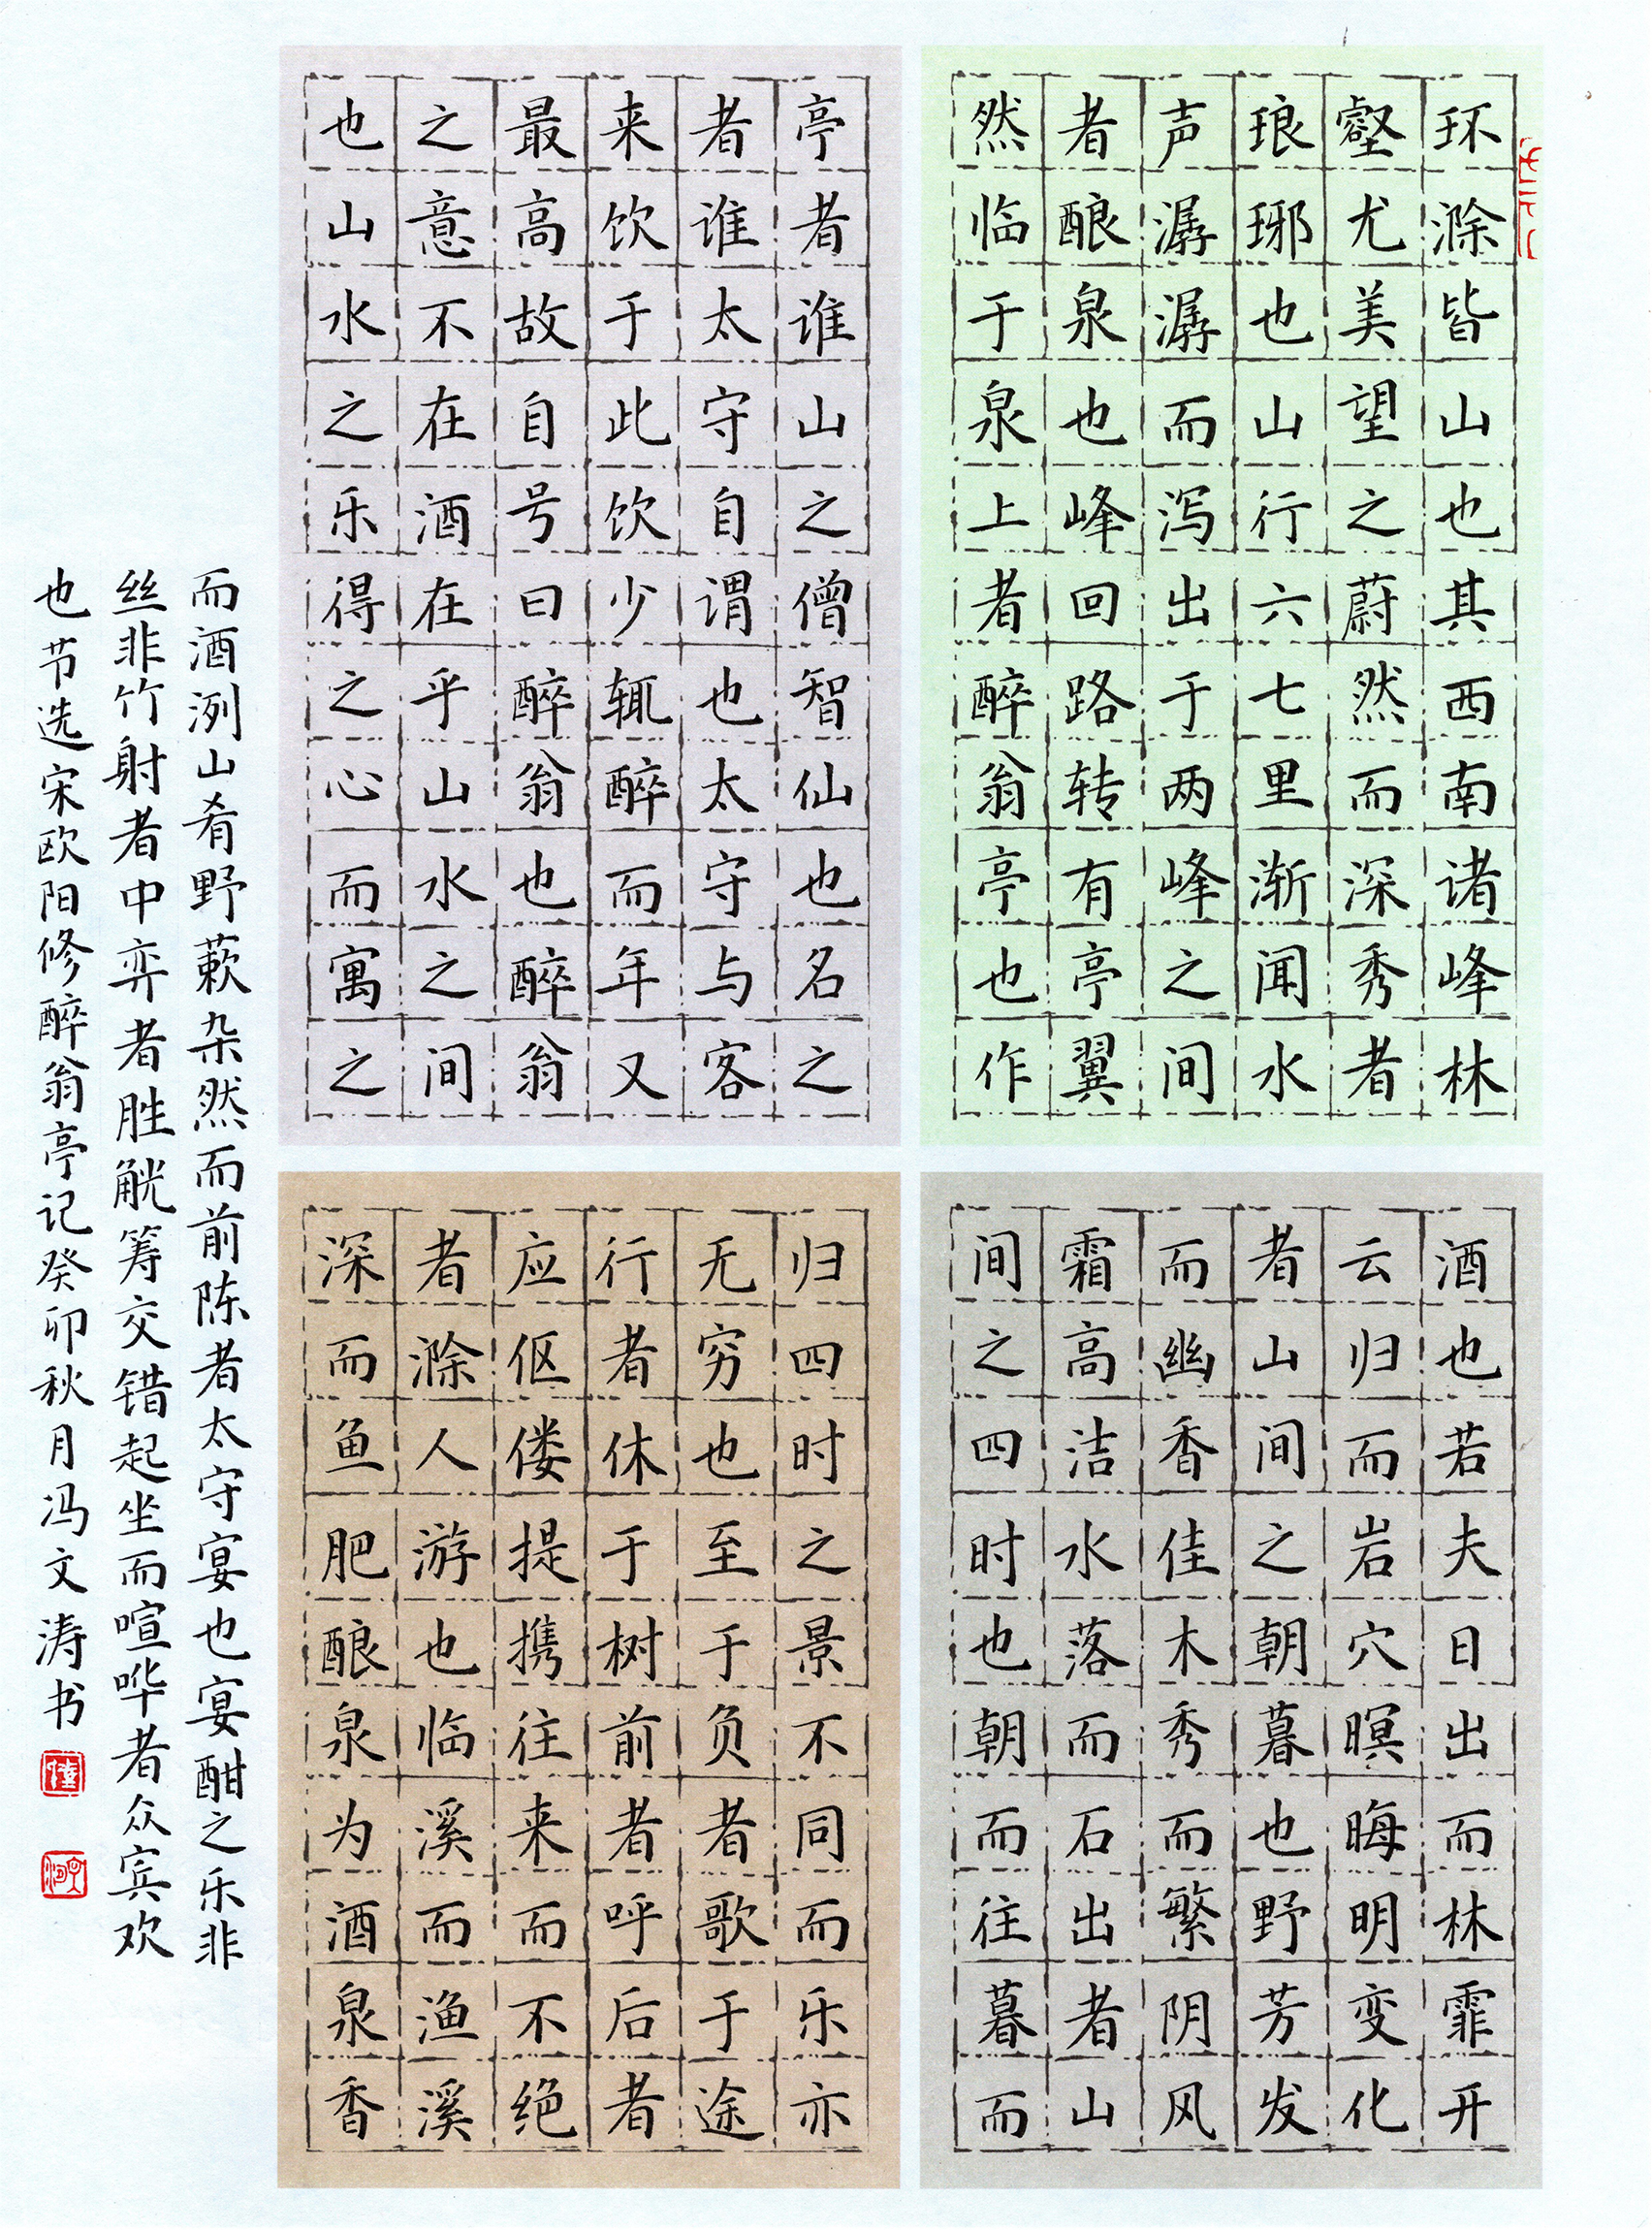 环滁皆山也其西南诸峰林
壑尤美望之蔚然而深秀者
琅琊也山行六七里渐闻水
声潺潺而泻出于两峰之间
者酿泉也峰回路转有亭翼
然临于泉上者醉翁亭也作
亭者谁山之僧智仙也名之
者谁太守自谓也太守与客
来饮于此饮少辄醉而年又
最高故自号曰醉翁也醉翁
之意不在酒在乎山水之间
也山水之乐得之心而寓之
酒也若夫日出而林霏开
云归而岩穴暝晦明变化
者山间之朝暮也野芳发
而幽香佳木秀而繁阴风
霜高洁水落石出者山
间之四时也朝而往暮而
归四时之景不同而乐亦
无穷也至于负者歌于途
行者休于树前者呼后者
应伛偻提携往来而不绝
者滁人游也临溪而渔溪
深而鱼肥酿泉为酒泉香
而酒洌山肴野蔌杂然而前陈者太守宴也宴酣之乐非
丝非竹射者中弈者胜觥筹交错起坐而喧哗者众宾欢
也节选宋欧阳修醉翁亭记癸卯秋月冯文涛书